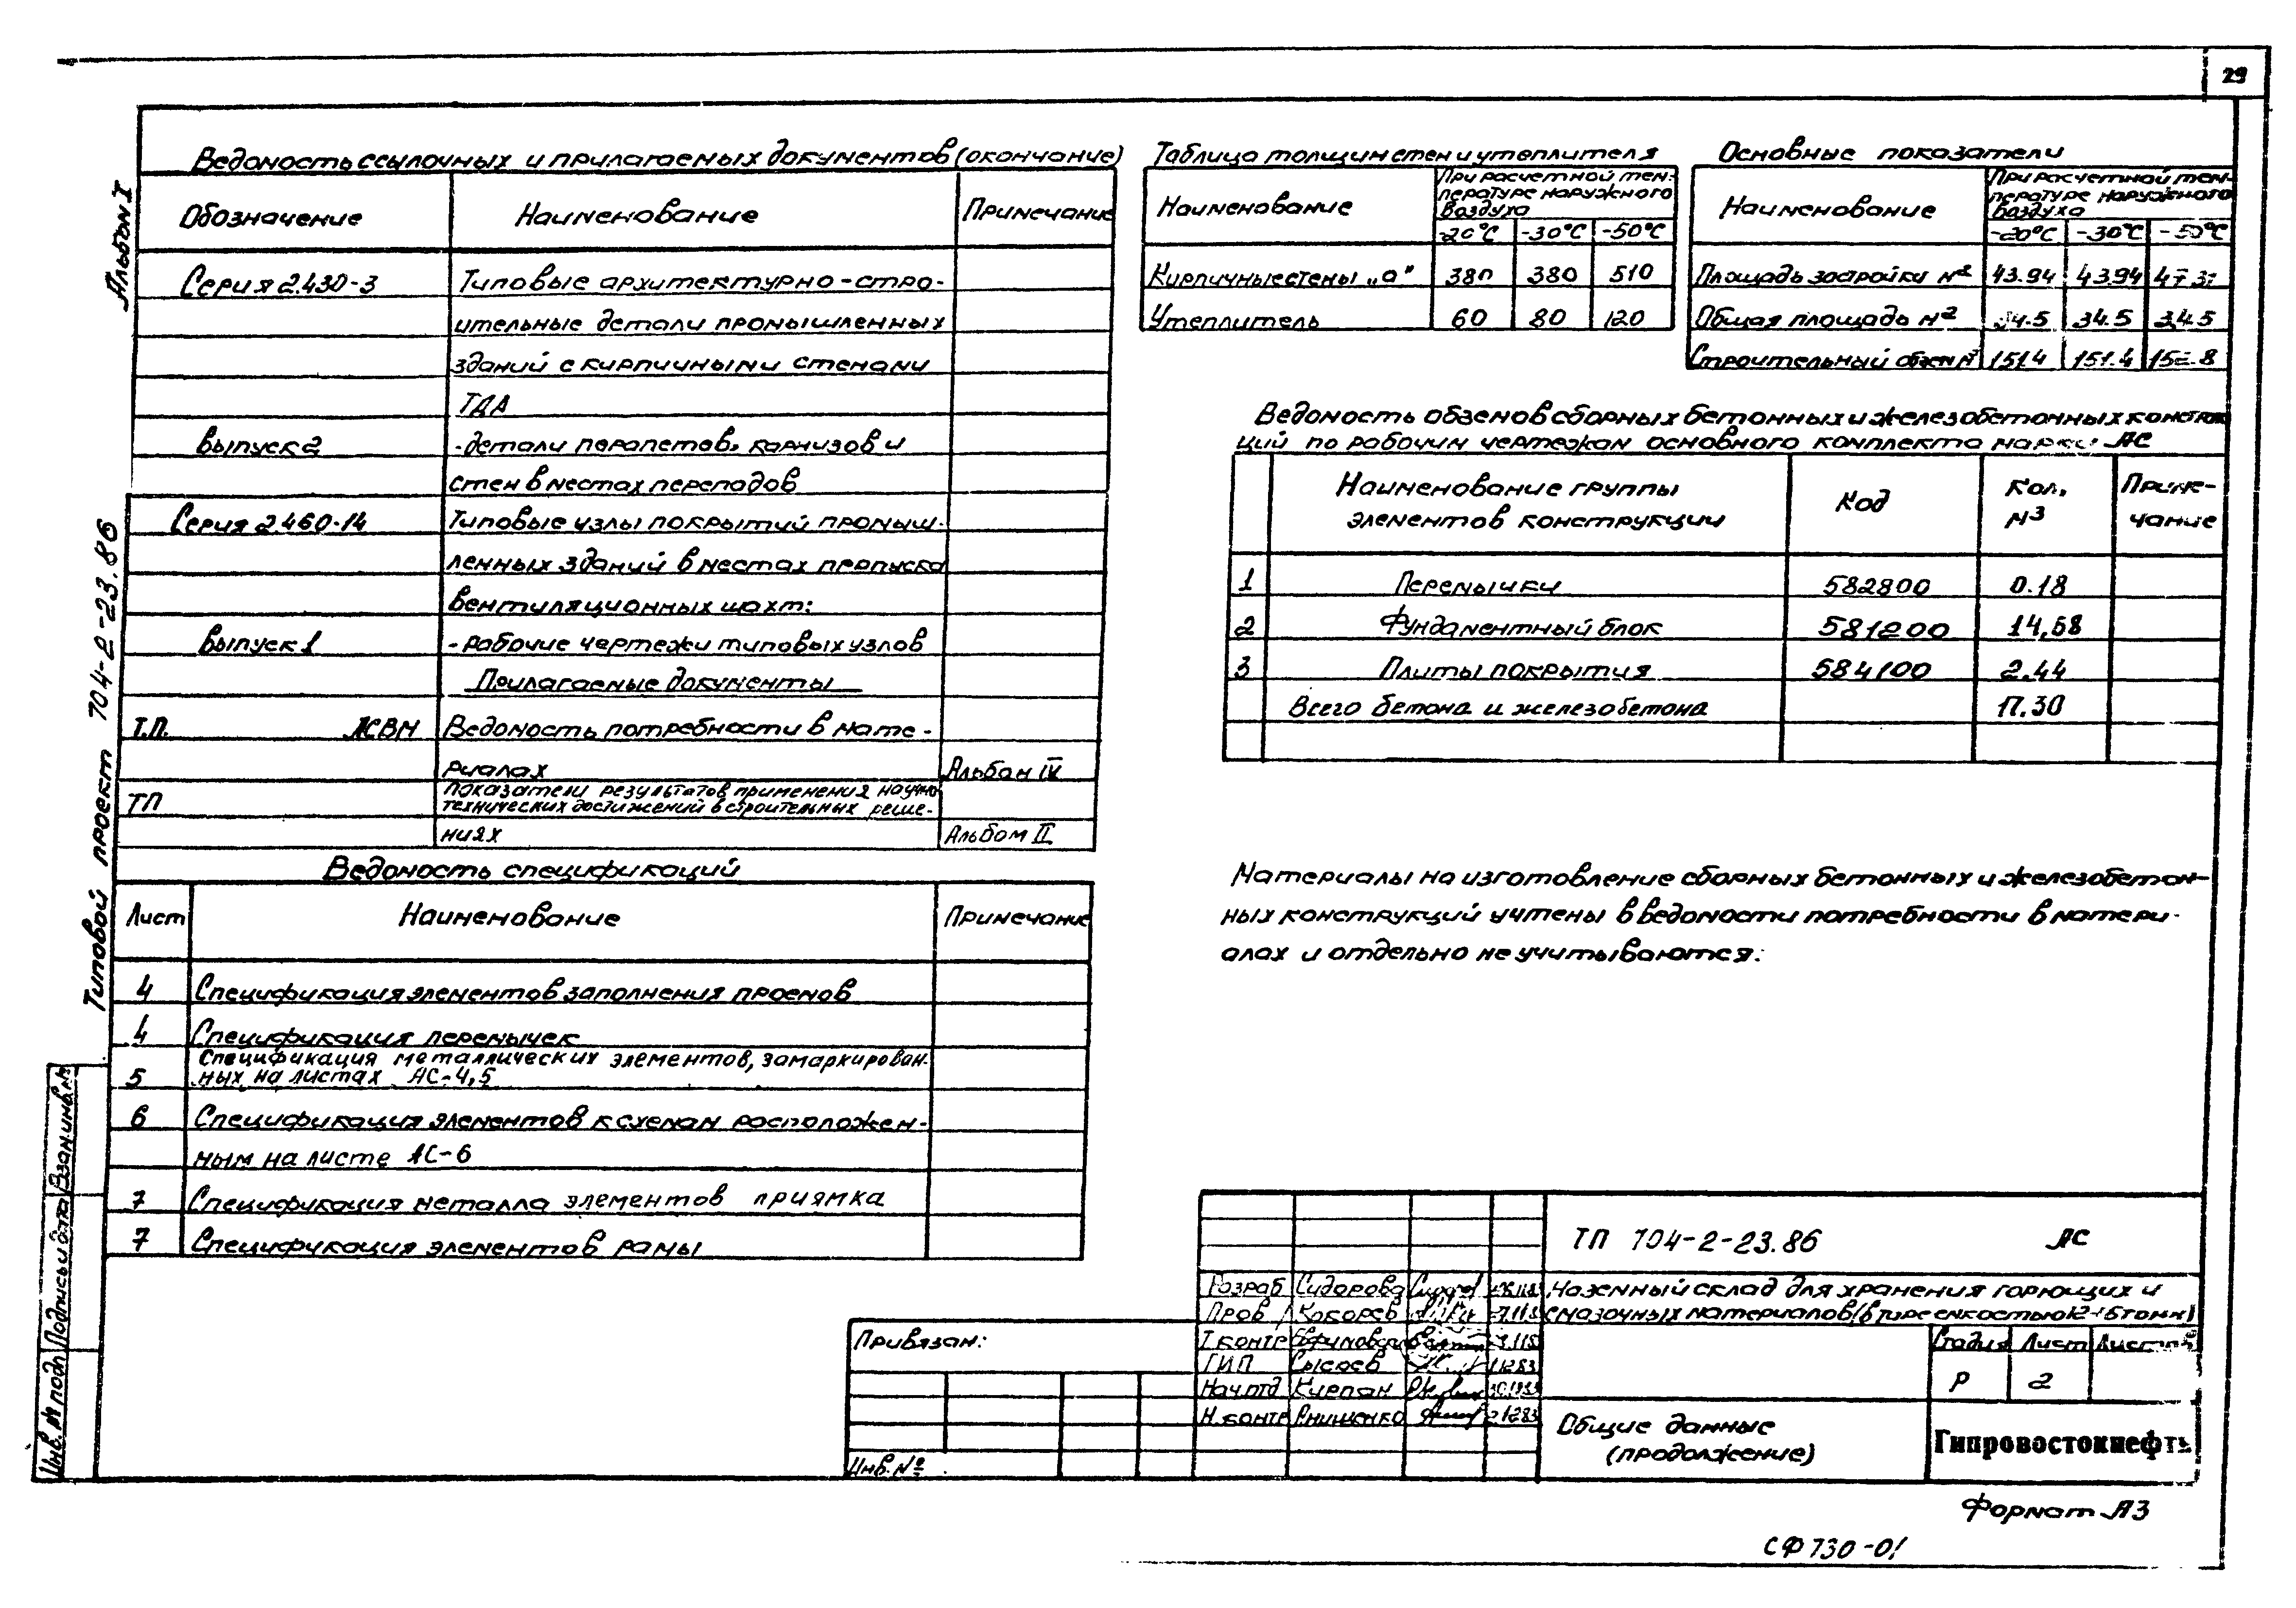 29
Альбом I
Типовой проект 704-2-23.86
Ведомость ссылочных и прилагаемых документов (окончание)
Обозначение Наименование Примечание
Серия 2.430-3 Типовые архитектурно-стро-
ительные детали промышленных
зданий с кирпичными стенами
ТДА
Выпуск 2 - детали парапетов, карнизов и
стен в местах перепадов
Серия 2.460-14 Типовые узлы покрытий промыш-
ленных зданий в местах пропуска
вентиляционных шахт:
Выпуск 1 - рабочие чертежи типовых узлов
Прилагаемые документы
Т.П. АСВМ Ведомость потребности в мате-
риалах Альбом IV
ТП Показатели результатов применения научно
технических достижений в строительных реше-
ниях Альбом II
Ведомость спецификаций
Лист Наименование Примечание
4 Спецификация элементов заполнения проемов
4 Спецификация перемычек
Спецификация металлических элементов, замаркирован-
5 ных на листах АС-4,5
6 Спецификация элементов к схемам расположен-
ным на листе АС-6
7 Спецификация металла элементов приямка
7 Спецификация элементов рамы
Таблица толщин стен и утеплителя
Наименование При расчетной тем-
пературе наружного
воздуха
-20°С -30°С -50°С
Кирпичные стены „а" 380 380 510
Утеплитель 60 80 120
Основные показатели
Наименование При расчетной тем-
пературе наружного
воздуха
-20°С -30°С -50°С
Площадь застройки м² 43.94 43.94
Общая площадь м² 34.5 34.5 34.5
Строительный объем м³ 151.4 151.4
Ведомость объемов сборных бетонных и железобетонных конструк
ций по рабочим чертежам основного комплекта марки АС
Наименование группы
элементов конструкции Код Кол, м³ Приме-
чание
1 Перемычки 582800 0.18
2 Фундаментный блок 581200 14,68
3 Плиты покрытия 584100 2.44
Всего бетона и железобетона 17.30
Материалы на изготовление сборных бетонных и железобетон-
ных конструкций учтены в ведомости потребности в матери-
алах и отдельно не учитываются.
Взам.инв.№
Подпись и дата
Инв. № подл
Привязан:
Инв. №
ТП 704-2-23.86 АС
Разраб Сидорова
Пров Кокорев
Т.контр
ГИП Сысоев
Нач.отд Кирпан
Н.контр
Наземный склад для хранения горючих и
смазочных материалов (в таре емкостью 12-15 тонн)
Стадия Лист Листов
Р 2
Общие данные
(продолжение)
Гипровостокнефть
Формат А3
СФ 730-01